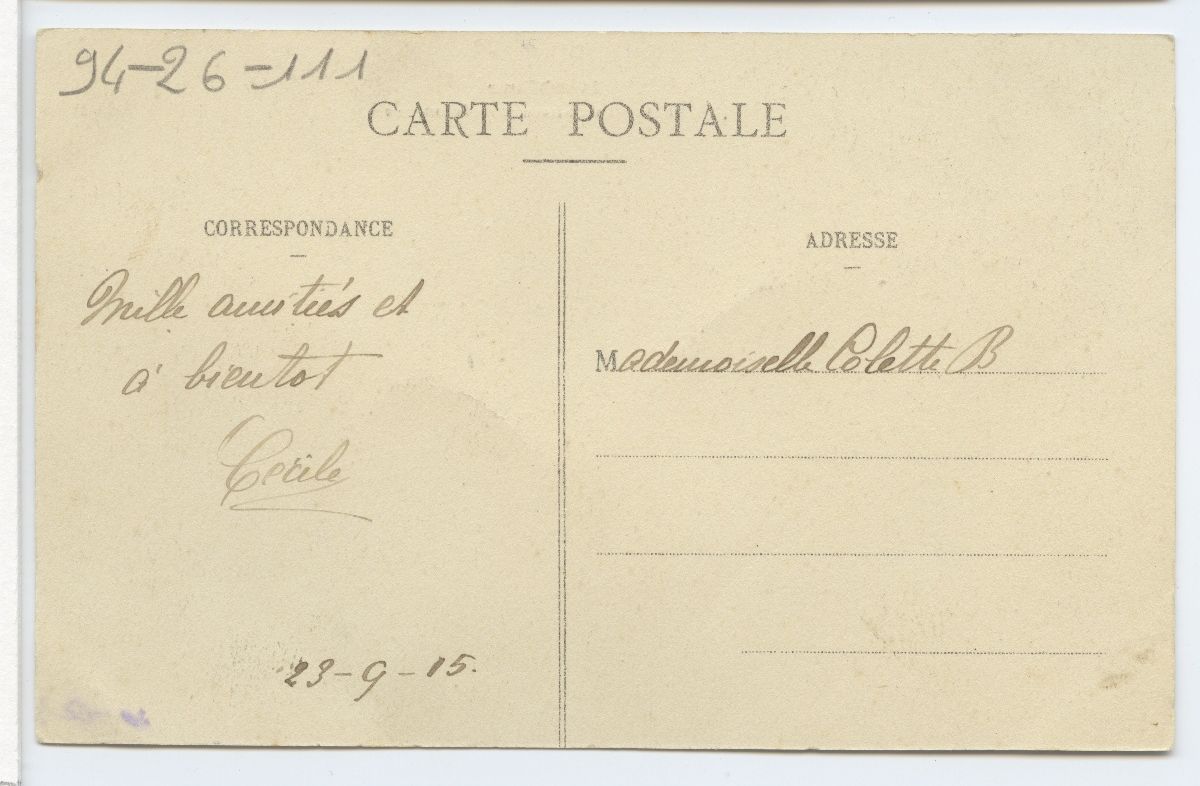 94-26-111
CARTE POSTALE
CORRESPONDANCE
ADRESSE
Mille amitiés et
à bientot
Cécile
23-9-15.
Mademoiselle Colette B